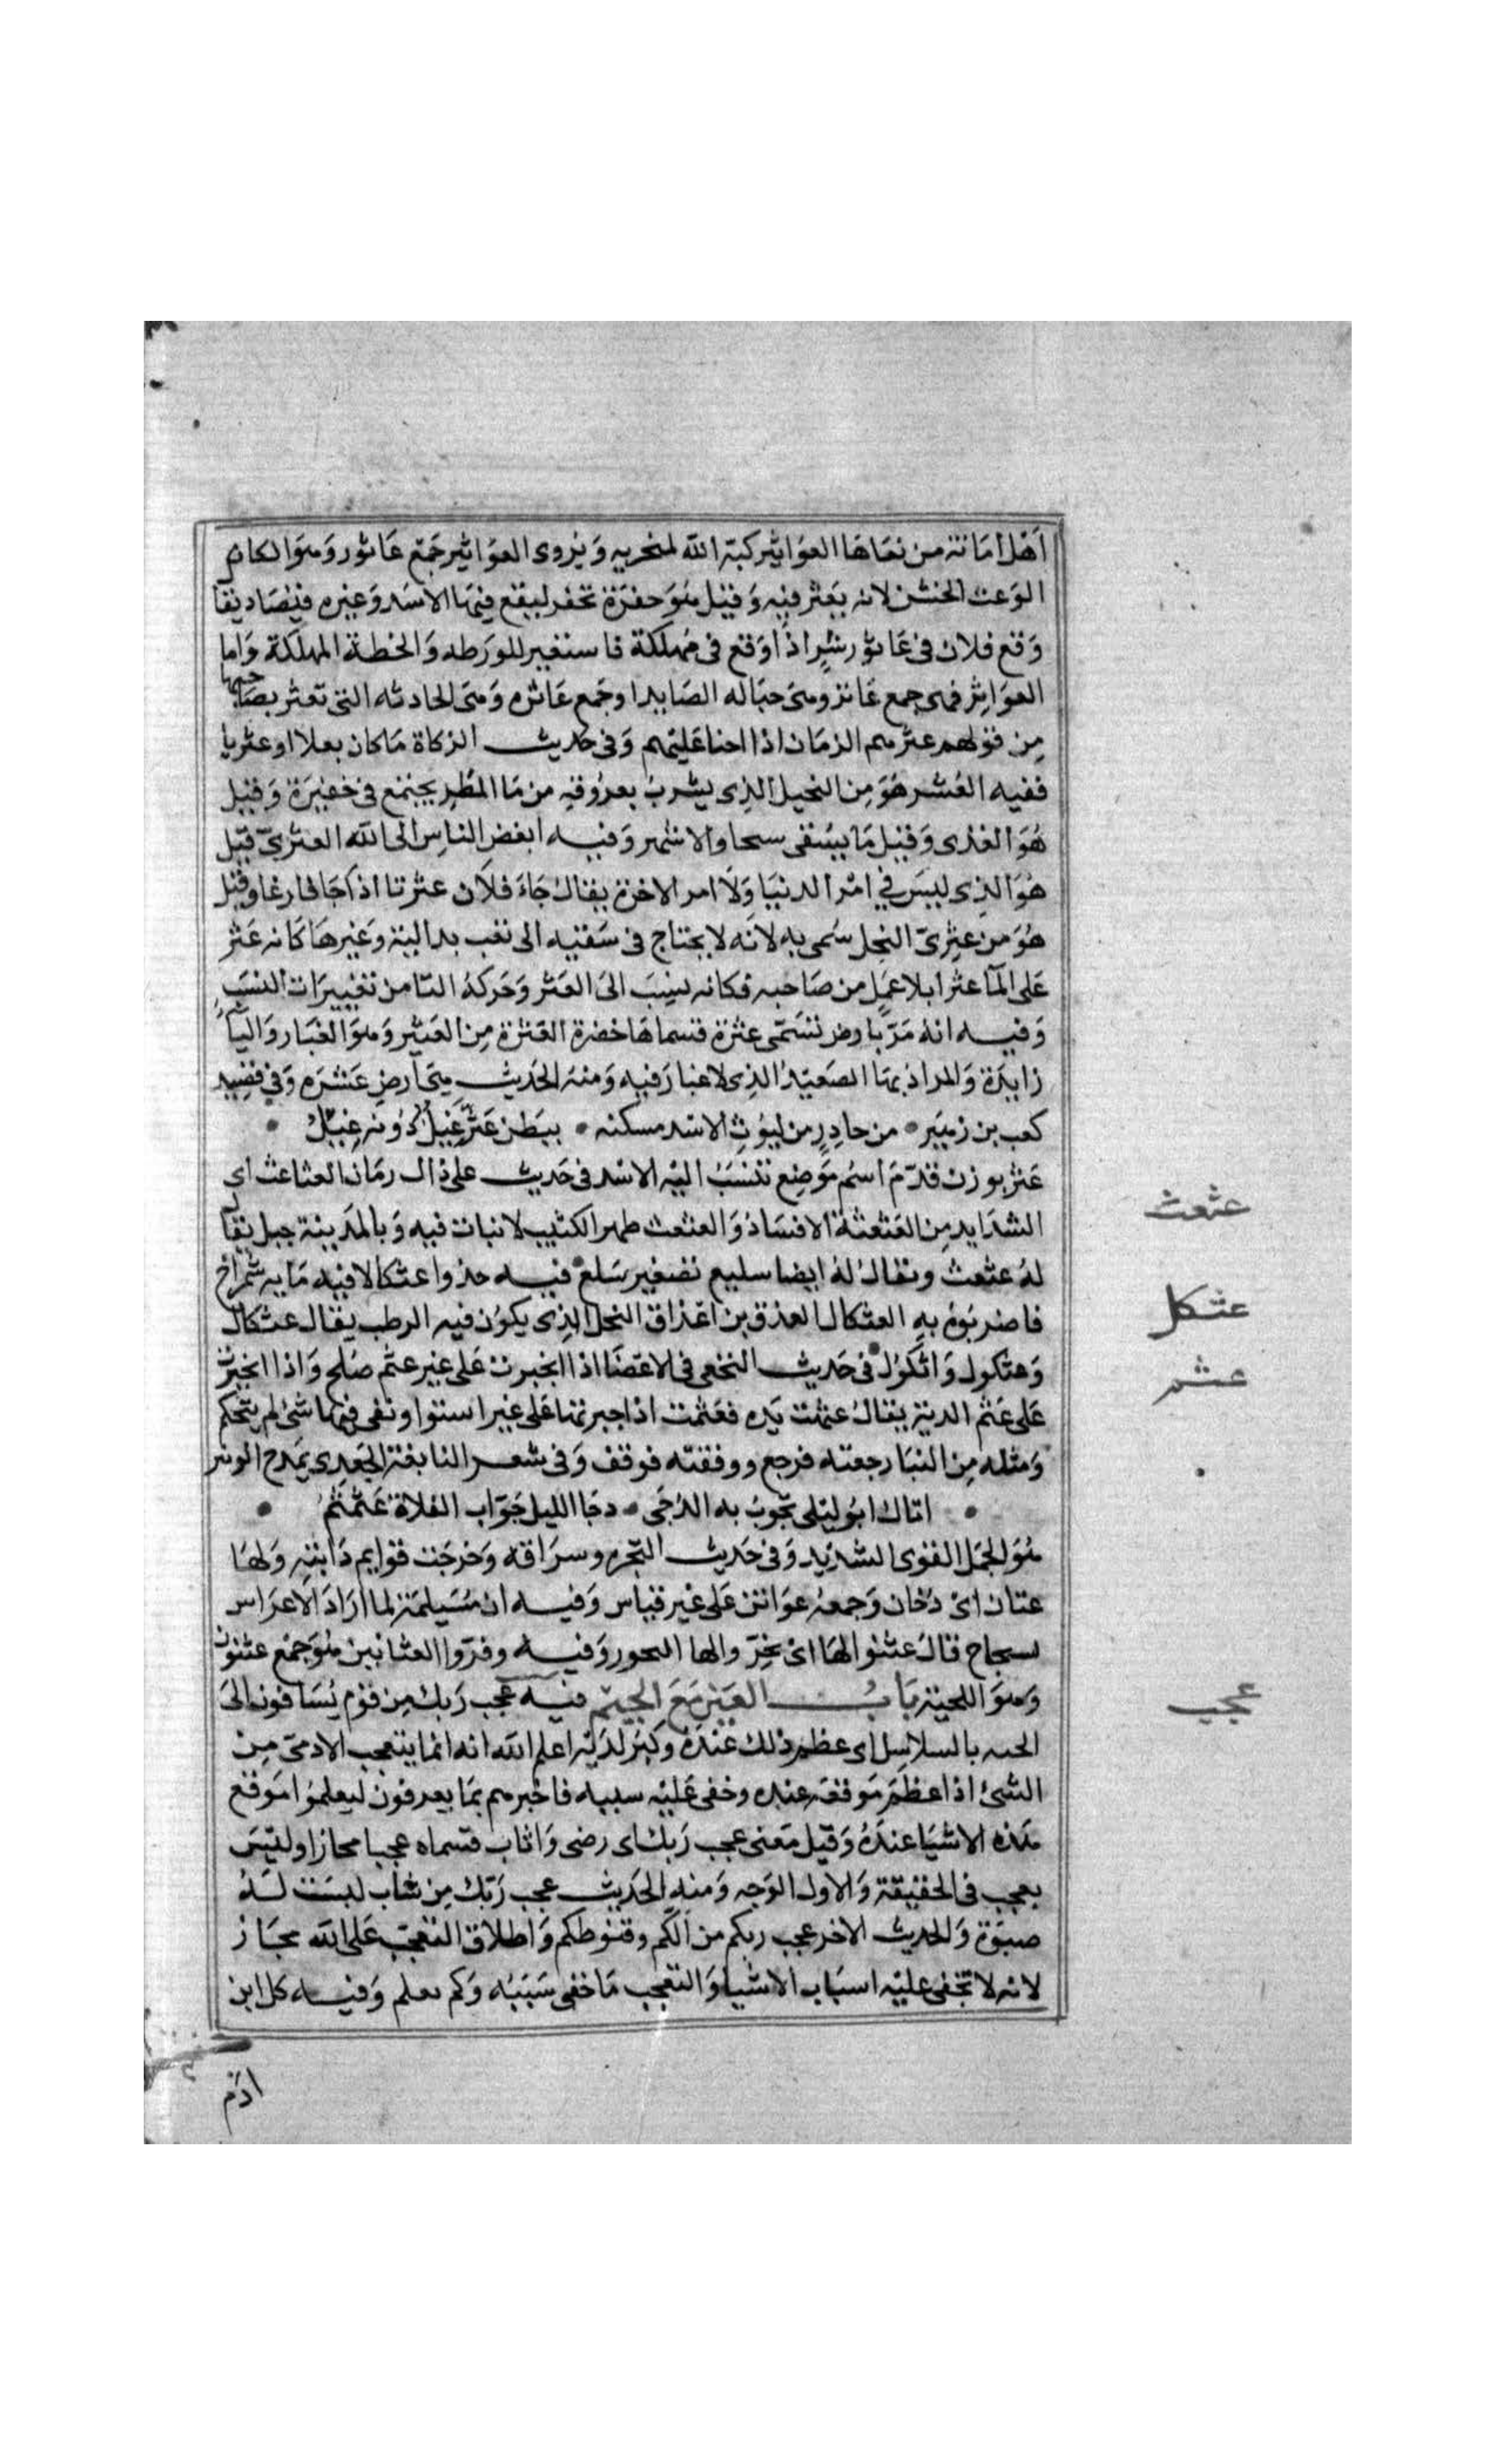 اَهل امَانة من نعَاهَا العوَاثير كبّه الله لمنخريه وَيُروى العوَاثير جَمع عَاثور وَهوَ المكان
الوَعث الخشن لانه يعثر فيه وَقيل هُوَ حفرَة تحفر ليقع فيهَا الاسَد وَغيره فيُصَاد يقا
وَقع فلان فى عَاثور شرٍّ اذا وَقع فى مُهلكة فاستعير للورَطه وَالخطة المهلكة وَاما
العوَاثِر فهى جمع عَاثر وهىَ حبَاله الصَايد اوجَمع عَاثره وَهىَ الحادثه التى تعثر بصَاحبها
مِن قولهم عثر بهم الزمَان اذا اخنا عَليهم وَفى حَديث الزكاة مَا كان بعلا او عثريا
ففيه العُشر هُوَ مِن النخيل الذى يشربُ بعرُوقهِ من مَا المَطرِ يجتمع فى حَفيرَة وَقيل
هُوَ العذى وَقيل مَا يُسقى سحا والاشهر وَفيه ابغض الناسِ الى الله العثرىّ قيل
هُوَ الذى ليسَ فى امْر الدنيَا وَلَا امر الاخرة يقالُ جَاءَ فلَان عثرتا اذا جَا فارغا وقيل
هُوَ من عثِرىّ النخل سُمى به لانَه لا يحتاج فى سَقيه الى تعب بدالية وَغيرهَا كَانه عَثر
عَلى المآ عثرا بلا عمَل من صَاحبه فكانه نسِبَ الى العَثر وَحَركة الثا من تغييرَات النسَبِ
وَفيه انهُ مَرّ بارض تسَمّى عثرة فسماهَا خضرة العَثرة مِن العَثير وَهوَ الغبَار وَاليَا
زايدَة وَالمراد بهَا الصَعيدُ الذى لا غبَار فيه وَمنهُ الحَديث هىَ ارض عَثرَه وَفى قصيد
كعب بن زهَير • من حادِرٍ من ليوُثِ الاسَد مسكنه • ببَطن عَثَّرَ غيلٌ دُونه غِيلُ •
عَثر بوزن قدّمَ اسمُ موَضِع تنسَبُ اليْه الاسْد فى حَديث على ذاك زمَان العثاعث اى
الشدَايد مِن العَثعثة الافسَاد وَالعثعث ظهر الكثيب لا نبات فيه وَبالمَدينة جبل يقا
لهُ عثعث ويقالُ لهُ ايضا سليع تصغير سَلع فيه خذوا عثكالا فيه مَايه شمرَاخ
فاضربوُه به العثكال العذق من اعذاق النخل الذى يكوُن فيه الرطب يقال عثكال
وَعثكول وَاثكوُل • فى حَديث النخعى فى الاعضَا اذا انجبرت عَلى غير عثم صُلح وَاذا انجبرت
عَلى عَثم الدية يقالُ عثمت يَده فعَثمت اذا جبرتهَا عَلى غير استوا وبقى فيهَا شئ لم يتحكم
وَمثله مِن البنا رجعته فرجع ووقفته فوقف وَفى شعر النابغة الجَعدِى يَمدح الوبر
• اتاك ابوُ ليلى يَجوبُ به الدُجَى • دجَا الليل جَوّاب الفلَاة عَثمثمُ •
هُوَ الجمَل القوى الشديد وَفى حَديث الهجره وسرَاقة وَخرجَت قوايم دَابته وَلهَا
عثان اىْ دخان وَجمعهُ عوَاثن عَلى غير قياس وَفيه ان مُسَيلمَة لما ارَادَ الاعرَاس
بسجاح قالَ عثنوا لهَا اىْ بخِرّوا لها البخور وَفيه وفرّوا العثانين هُوَ جَمع عثنون
وَهوَ اللحية بَابُ العَين مَعَ الجيم فيه عجب رَبك مِن قوَم يُسَاقون الىَ
الجنه بالسلاسِل اى عظم ذلك عندَهُ وَكبر لدَيه اعلم الله انه انما يتعجب الادمىّ مِن
الشئ اذا عظمَ موَقعَه عنده وخفى عَليه سببه فاخبرهم بمَا يعرفون ليعلموُا موَقع
هَذه الاشيَا عندَهُ وَقيل مَعنى عجب رَبك اى رضى وَاثاب فسماه عجبا مجازا وليسَ
بعجب فى الحقيقة وَالاول الوَجه وَمنه الحَديث عجب رَبّك مِن شابّ ليسَت لَهُ
صبوَة وَالحديث الاخر عجب ربكم من الّكم وقنوُطكم وَاطلاق التعجبّ عَلى الله مجَاز
لانه لا تخفى عليْه اسبَاب الاشيا وَالتعجب مَا خفى سَبَبُه وَلم يعلم وَفيه كل ابن
ادَم
عثعث
عثكل
عثم
عجب